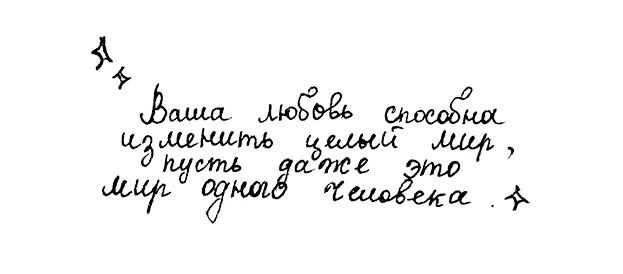 Ваша любовь способна
изменить целый мир,
пусть даже это
мир одного человека.